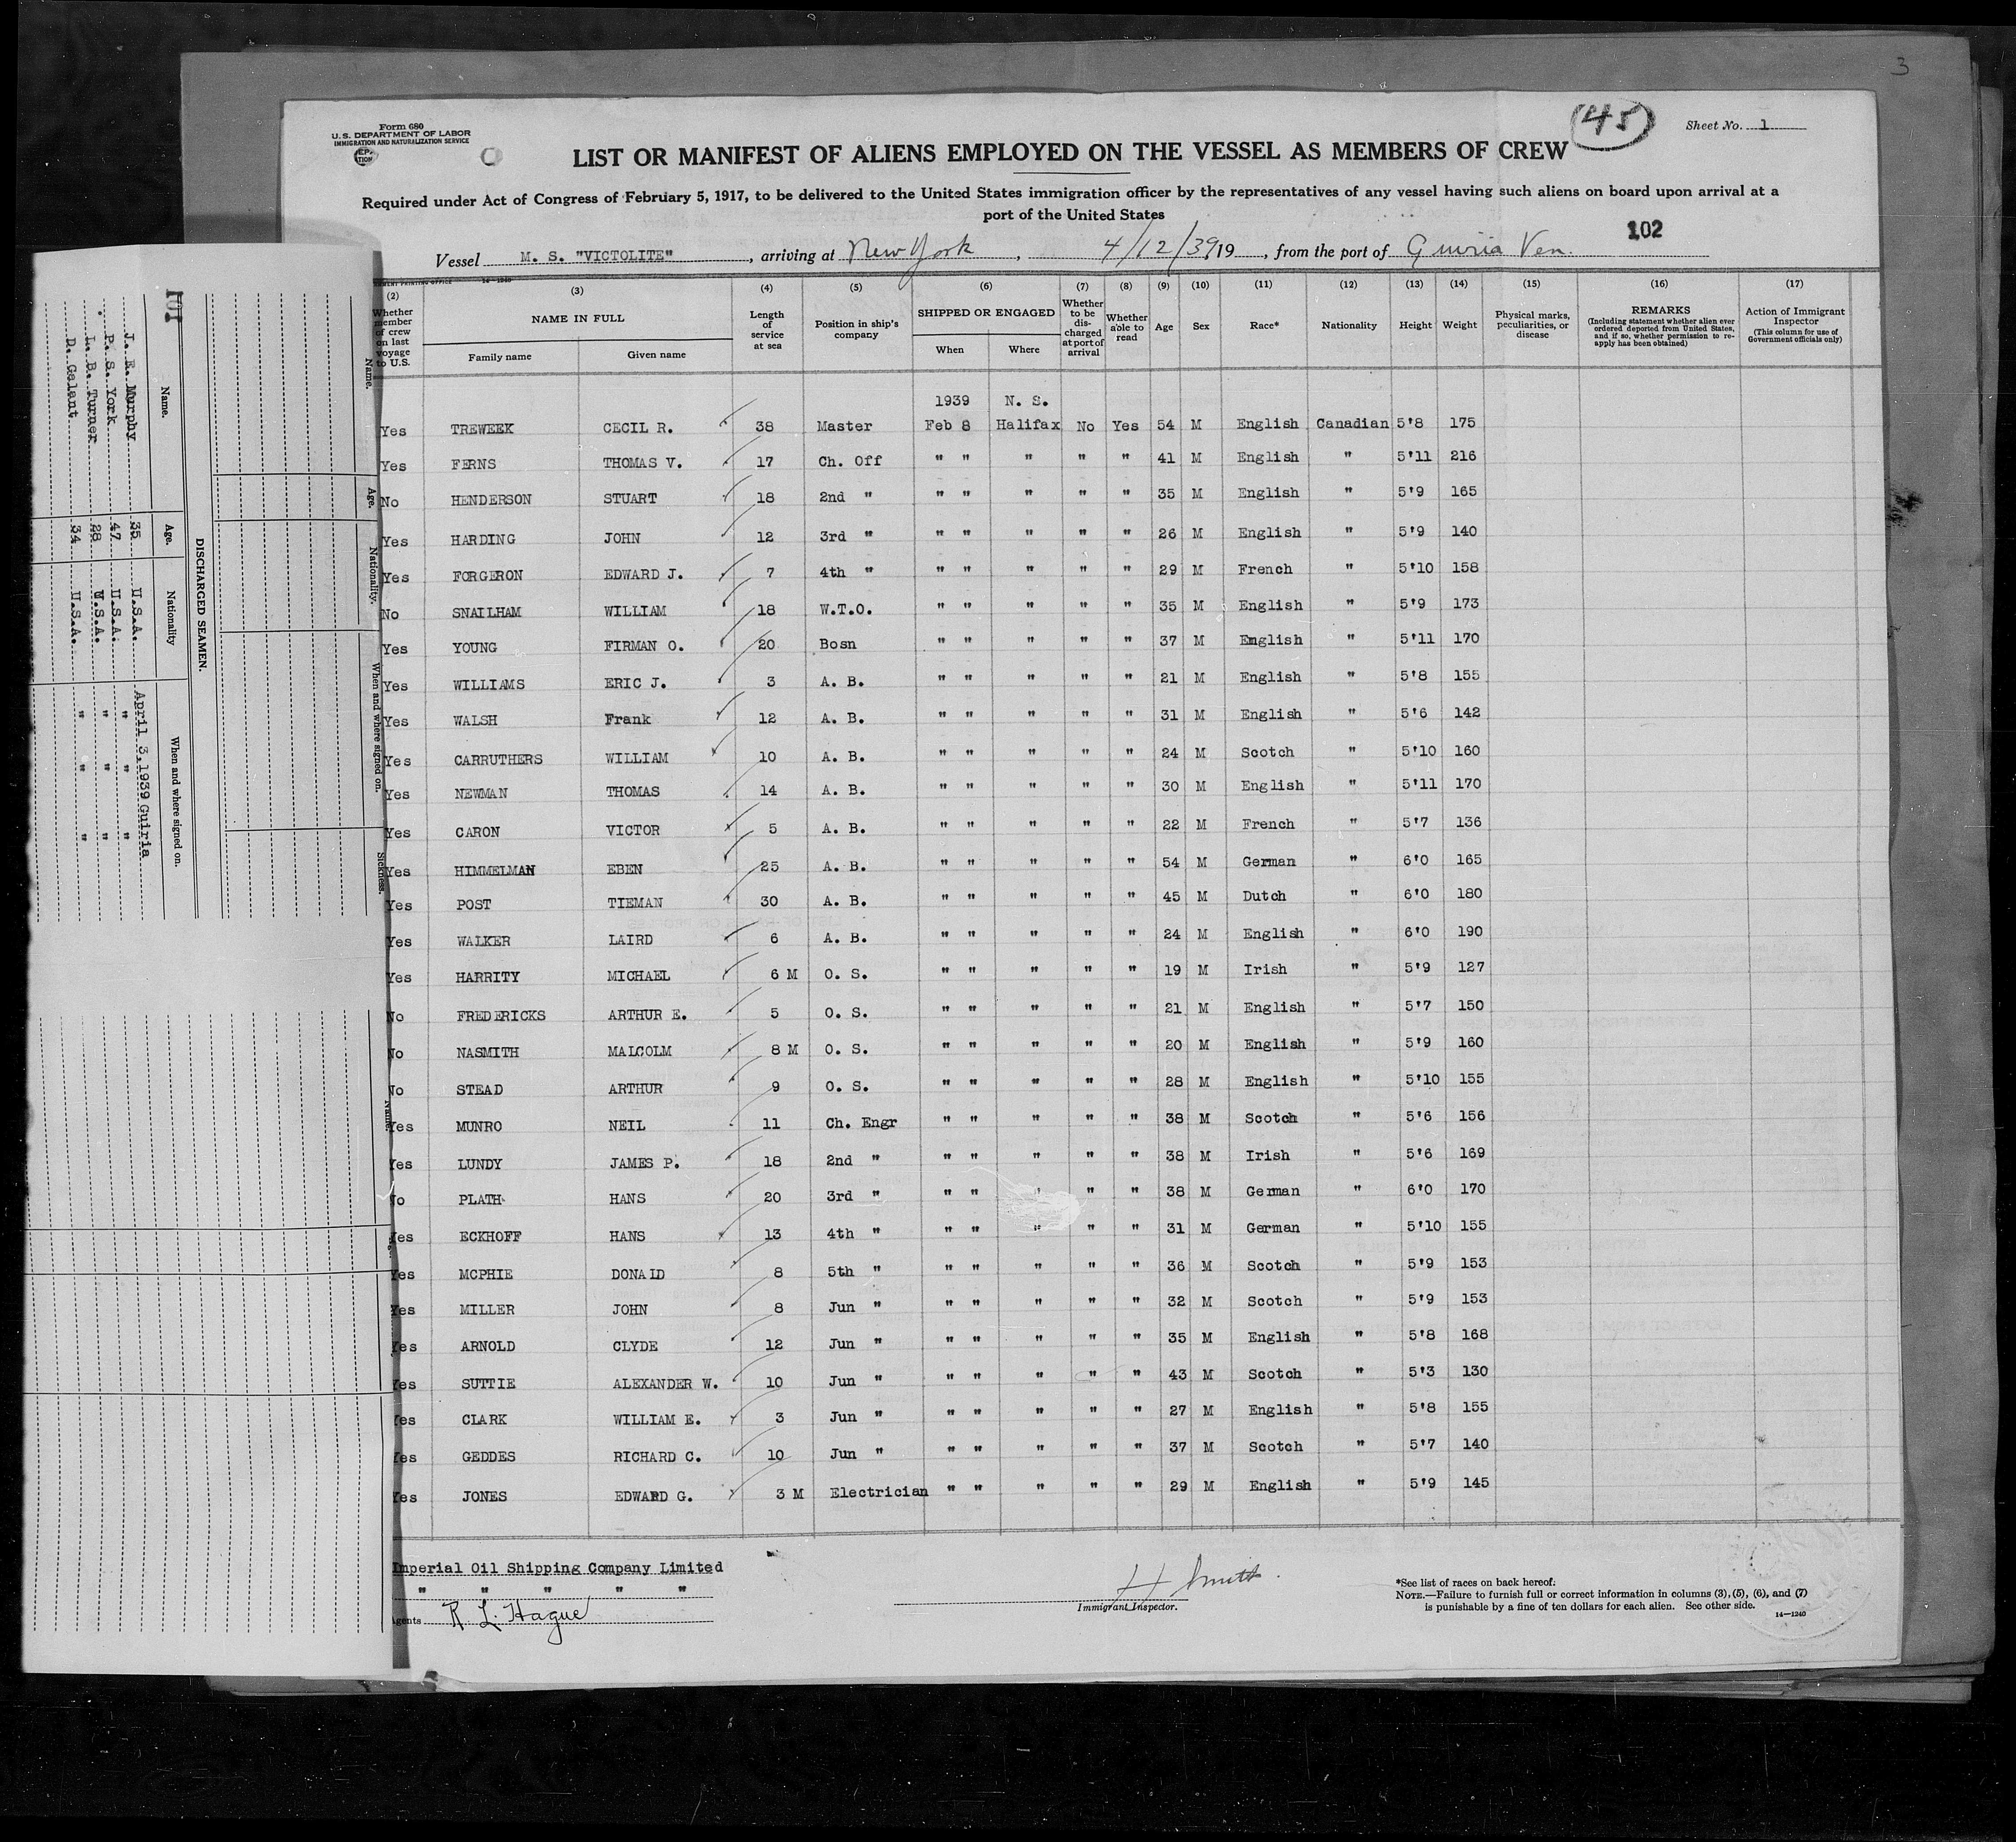 3
Form 680
U.S. DEPARTMENT OF LABOR
IMMIGRATION AND NATURALIZATION SERVICE
(45)
Sheet No. 1
LIST OR MANIFEST OF ALIENS EMPLOYED ON THE VESSEL AS MEMBERS OF CREW
Required under Act of Congress of February 5, 1917, to be delivered to the United States immigration officer by the representatives of any vessel having such aliens on board upon arrival at a
port of the United States
102
Vessel M. S. "VICTOLITE", arriving at New York, 4/12/39 19, from the port of Guiria Ven.
(2) Whether member of crew on last voyage to U.S.
(3) NAME IN FULL Family name Given name
(4) Length of service at sea
(5) Position in ship's company
(6) SHIPPED OR ENGAGED When Where
(7) Whether to be discharged at port of arrival
(8) Whether able to read
(9) Age
(10) Sex
(11) Race*
(12) Nationality
(13) Height
(14) Weight
(15) Physical marks, peculiarities, or disease
(16) REMARKS (Including statement whether alien ever ordered deported from United States, and if so, whether permission to re-apply has been obtained)
(17) Action of Immigrant Inspector (This column for use of Government officials only)
1939 N. S.
Yes TREWEEK CECIL R. 38 Master Feb 8 Halifax No Yes 54 M English Canadian 5'8 175
Yes FERNS THOMAS V. 17 Ch. Off " " " " " 41 M English " 5'11 216
No HENDERSON STUART 18 2nd " " " " " " 35 M English " 5'9 165
Yes HARDING JOHN 12 3rd " " " " " " 26 M English " 5'9 140
Yes FORGERON EDWARD J. 7 4th " " " " " " 29 M French " 5'10 158
No SNAILHAM WILLIAM 18 W.T.O. " " " " " 35 M English " 5'9 173
Yes YOUNG FIRMAN O. 20 Bosn " " " " " 37 M English " 5'11 170
Yes WILLIAMS ERIC J. 3 A. B. " " " " " 21 M English " 5'8 155
Yes WALSH Frank 12 A. B. " " " " " 31 M English " 5'6 142
Yes CARRUTHERS WILLIAM 10 A. B. " " " " " 24 M Scotch " 5'10 160
Yes NEWMAN THOMAS 14 A. B. " " " " " 30 M English " 5'11 170
Yes CARON VICTOR 5 A. B. " " " " " 22 M French " 5'7 136
Yes HIMMELMAN EBEN 25 A. B. " " " " " 54 M German " 6'0 165
Yes POST TIEMAN 30 A. B. " " " " " 45 M Dutch " 6'0 180
Yes WALKER LAIRD 6 A. B. " " " " " 24 M English " 6'0 190
Yes HARRITY MICHAEL 6 M O. S. " " " " " 19 M Irish " 5'9 127
No FREDERICKS ARTHUR E. 5 O. S. " " " " " 21 M English " 5'7 150
No NASMITH MALCOLM 8 M O. S. " " " " " 20 M English " 5'9 160
No STEAD ARTHUR 9 O. S. " " " " " 28 M English " 5'10 155
Yes MUNRO NEIL 11 Ch. Engr " " " " " 38 M Scotch " 5'6 156
Yes LUNDY JAMES P. 18 2nd " " " " " " 38 M Irish " 5'6 169
No PLATH HANS 20 3rd " " " " " " 38 M German " 6'0 170
Yes ECKHOFF HANS 13 4th " " " " " " 31 M German " 5'10 155
Yes MCPHIE DONALD 8 5th " " " " " " 36 M Scotch " 5'9 153
Yes MILLER JOHN 8 Jun " " " " " " 32 M Scotch " 5'9 153
Yes ARNOLD CLYDE 12 Jun " " " " " " 35 M English " 5'8 168
Yes SUTTIE ALEXANDER W. 10 Jun " " " " " " 43 M Scotch " 5'3 130
Yes CLARK WILLIAM E. 3 Jun " " " " " " 27 M English " 5'8 155
Yes GEDDES RICHARD C. 10 Jun " " " " " " 37 M Scotch " 5'7 140
Yes JONES EDWARD G. 3 M Electrician " " " " " 29 M English " 5'9 145
Imperial Oil Shipping Company Limited
" " " " "
Agents R L. Hague
H Smith.
Immigrant Inspector.
*See list of races on back hereof.
NOTE.—Failure to furnish full or correct information in columns (3), (5), (6), and (7)
is punishable by a fine of ten dollars for each alien. See other side.
14—1240
101
Name. Age. Nationality. When and where signed on. Sickness.
DISCHARGED SEAMEN.
Name. Age. Nationality When and where signed on.
J. E. Murphy 35 U.S.A. April 3, 1939 Guiria
P. S. York 47 U.S.A. " " "
L. B. Turner 28 U.S.A. " " "
D. Galant 34 U.S.A. " " "
Name.